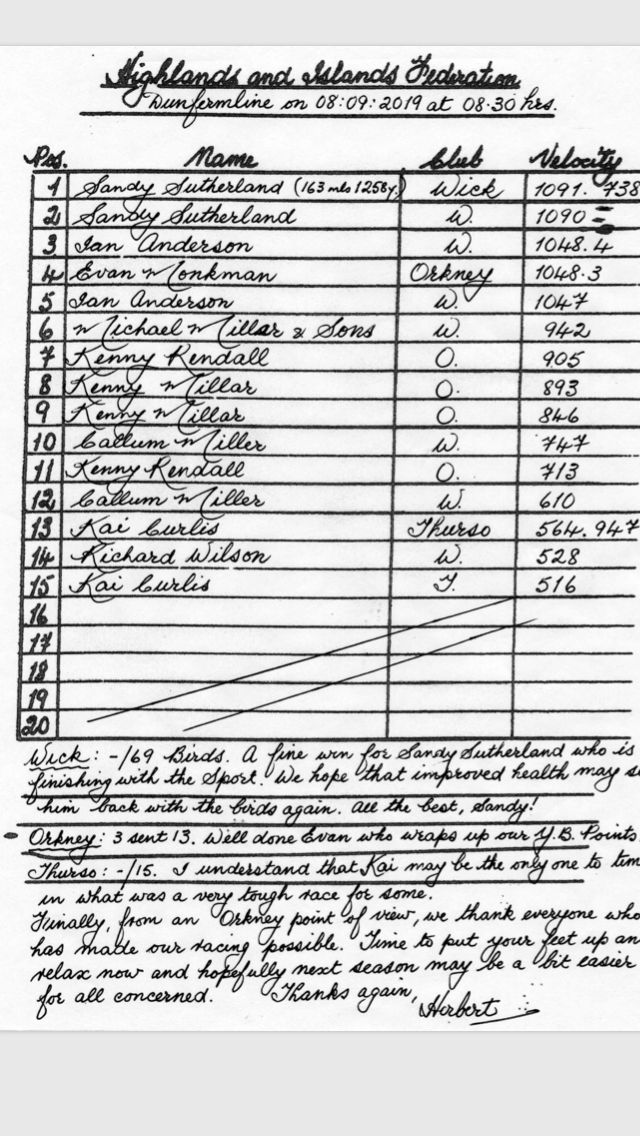 Highlands and Islands Federation
Dunfermline on 08:09:2019 at 08·30 hrs.
Pos. Name Club Velocity
1 Sandy Sutherland (163 mls 1258y.) Wick 1091.738
2 Sandy Sutherland W. 1090
3 Ian Anderson W. 1048.4
4 Evan Monkman Orkney 1048.3
5 Ian Anderson W. 1047
6 Michael Millar & Sons W. 942
7 Kenny Kendall O. 905
8 Kenny Millar O. 893
9 Kenny Millar O. 846
10 Callum Miller W. 747
11 Kenny Kendall O. 713
12 Callum Miller W. 610
13 Kai Curlis Thurso 564.947
14 Richard Wilson W. 528
15 Kai Curlis T. 516
16
17
18
19
20
Wick: -/69 Birds. A fine win for Sandy Sutherland who is
finishing with the Sport. We hope that improved health may
him back with the birds again. All the best, Sandy!
Orkney: 3 sent 13. Well done Evan who wraps up our Y.B. Points.
Thurso: -/15. I understand that Kai may be the only one to
in what was a very tough race for some.
Finally, from an Orkney point of view, we thank everyone who
has made our racing possible. Time to put your feet up
relax now and hopefully next season may be a bit easier
for all concerned. Thanks again,
Herbert